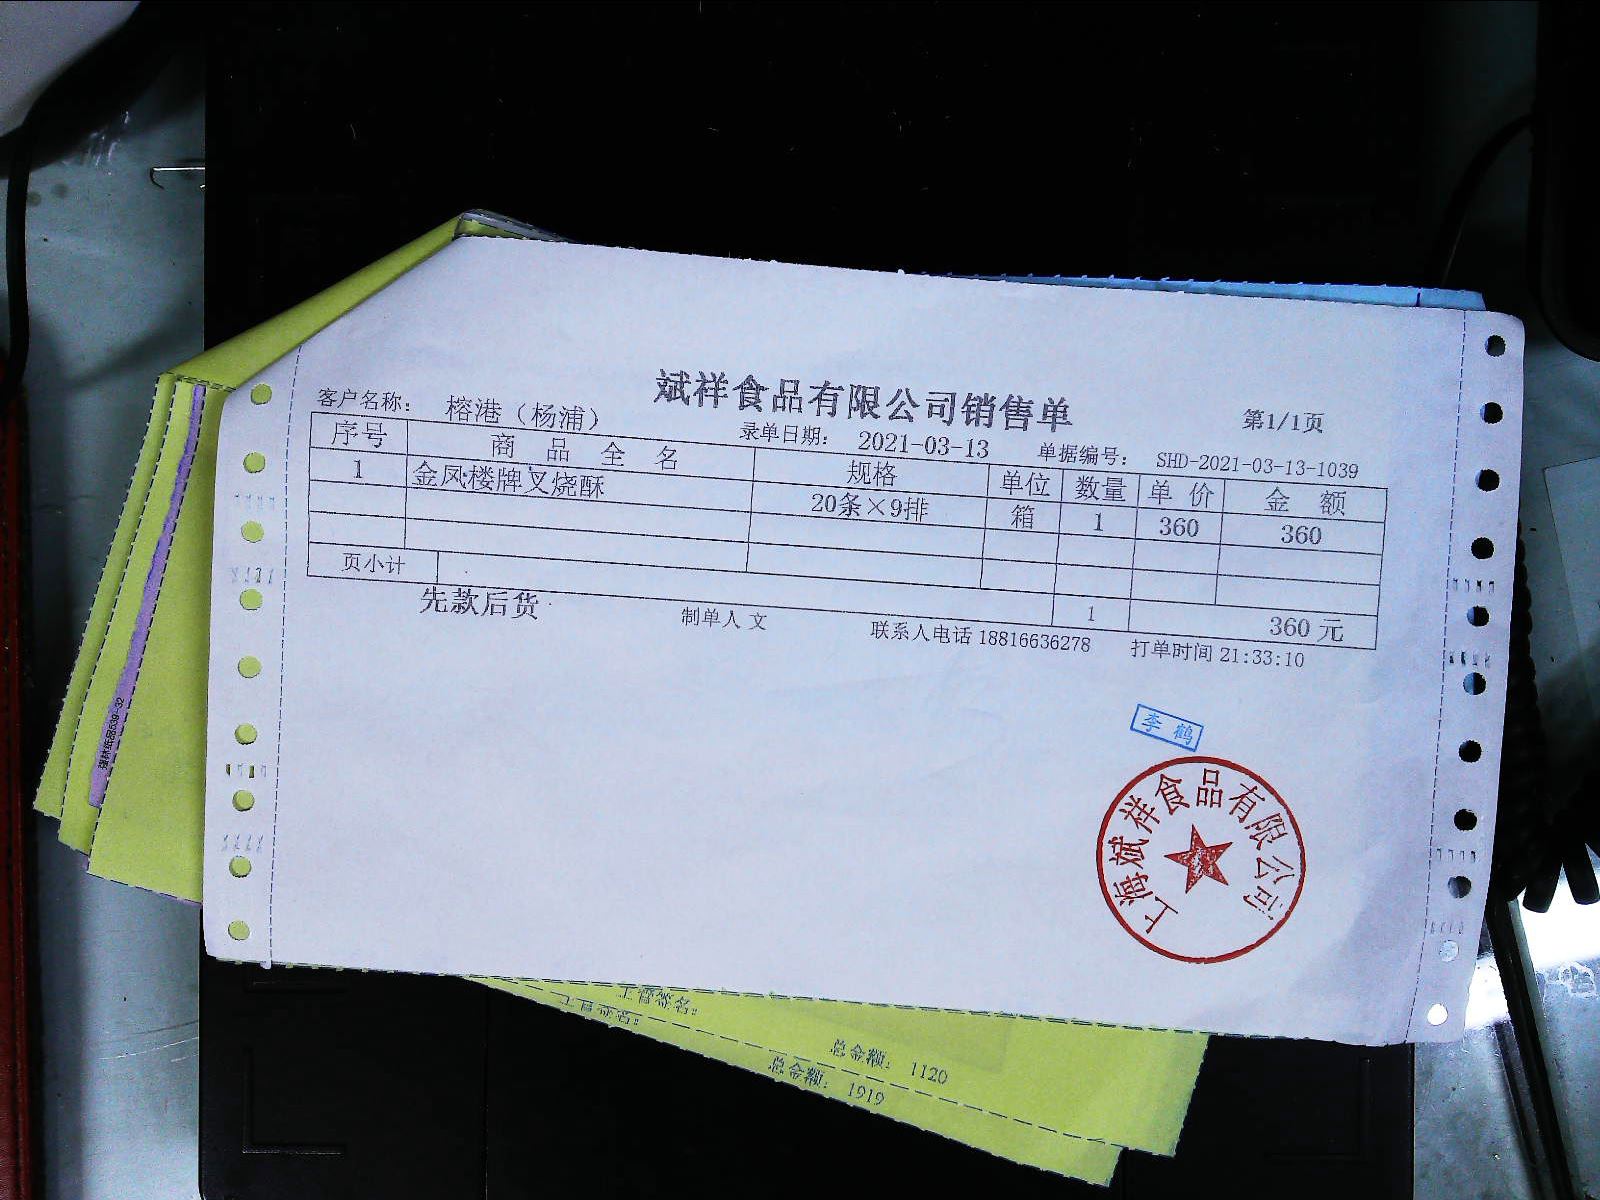 斌祥食品有限公司销售单
第1/1页
客户名称： 榕港（杨浦） 录单日期： 2021-03-13 单据编号： SHD-2021-03-13-1039
序号 商 品 全 名 规格 单位 数量 单 价 金 额
1 金凤楼牌叉烧酥 20条×9排 箱 1 360 360
页小计 1 360 元
先款后货 制单人 文 联系人电话 18816636278 打单时间 21:33:10
李 鹤
上海斌祥食品有限公司
强林纸品539-32
主管签名：
主管签名：
总金额： 1120
总金额： 1919